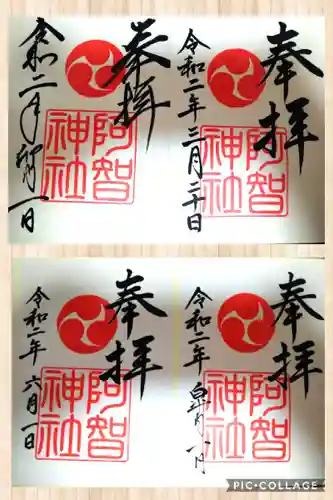 奉拝
阿智
神社
令和二年卯月一日
奉拝
阿智
神社
令和二年三月二十日
奉拝
阿智
神社
令和二年六月一日
奉拝
阿智
神社
令和二年皐月
PIC•COLLAGE